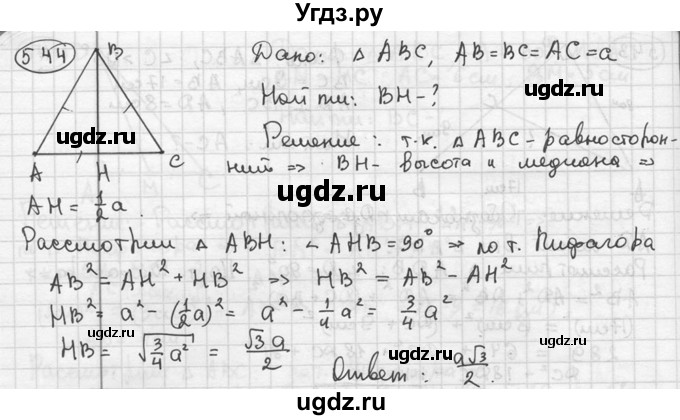 Угдз.ру
544
B
Дано: △ ABC, AB = BC = AC = a
Найти: BH - ?
ugdz.ru
ugdz.ru
Решение: т.к. △ ABC - равносторон-
ний => BH - высота и медиана =>
A H C
ugdz.ru
AH = 1/2 a.
Рассмотрим △ ABH: ∠ AHB = 90° => по т. Пифагора
AB² = AH² + HB² => HB² = AB² - AH²
HB² = a² - (1/2 a)² = a² - 1/4 a² = 3/4 a²
ugdz.ru
ugdz.ru
HB = √(3/4 a²) = √3 a / 2
Ответ: a√3 / 2.
ugdz.ru